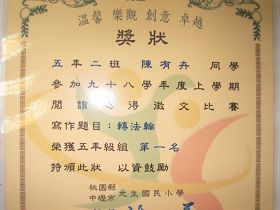 溫馨 樂觀 創意 卓越
獎狀
五年二班 陳宥卉 同學
參加九十八學年度上學期
閱讀心得徵文比賽
寫作題目：轉法輪
榮獲五年級組 第一名
特頒此狀 以資鼓勵
桃園縣
中壢市 元生國民小學